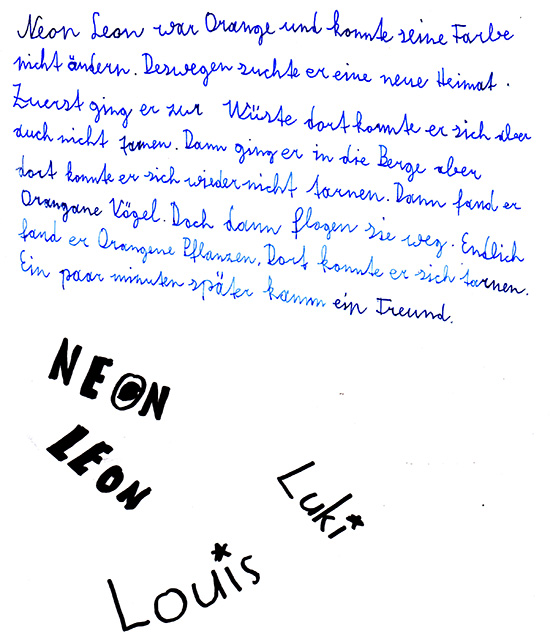 Neon Leon war Orange und konnte seine Farbe
nicht ändern. Deswegen suchte er eine neue Heimat.
Zuerst ging er zur Wüste dort konnte er sich aber
auch nicht tarnen. Dann ging er in die Berge aber
dort konnte er sich wieder nicht tarnen. Dann fand er
Orangane Vögel. Doch dann flogen sie weg. Endlich
fand er Orangene Pflanzen. Dort konnte er sich tarnen.
Ein paar minuten später kamm ein Freund.
NEON
LEON
Luki
Louis